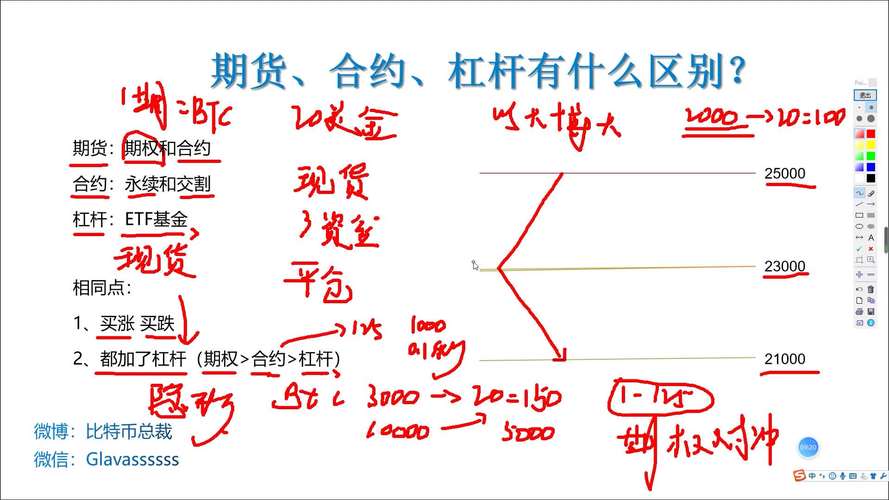 期货、合约、杠杆有什么区别?
1期=BTC 20美金 以大博大 2000→20=100
期货：期权和合约
25000
合约：永续和交割
现货
杠杆：ETF基金
现货
平仓
23000
相同点：
1、买涨 买跌
125 1000
2、都加了杠杆（期权>合约>杠杆）
21000
BTC 3000→20=150
1-125
10000→5000
对冲
微博：比特币总裁
微信：Glavassssss
09:20
退出
中